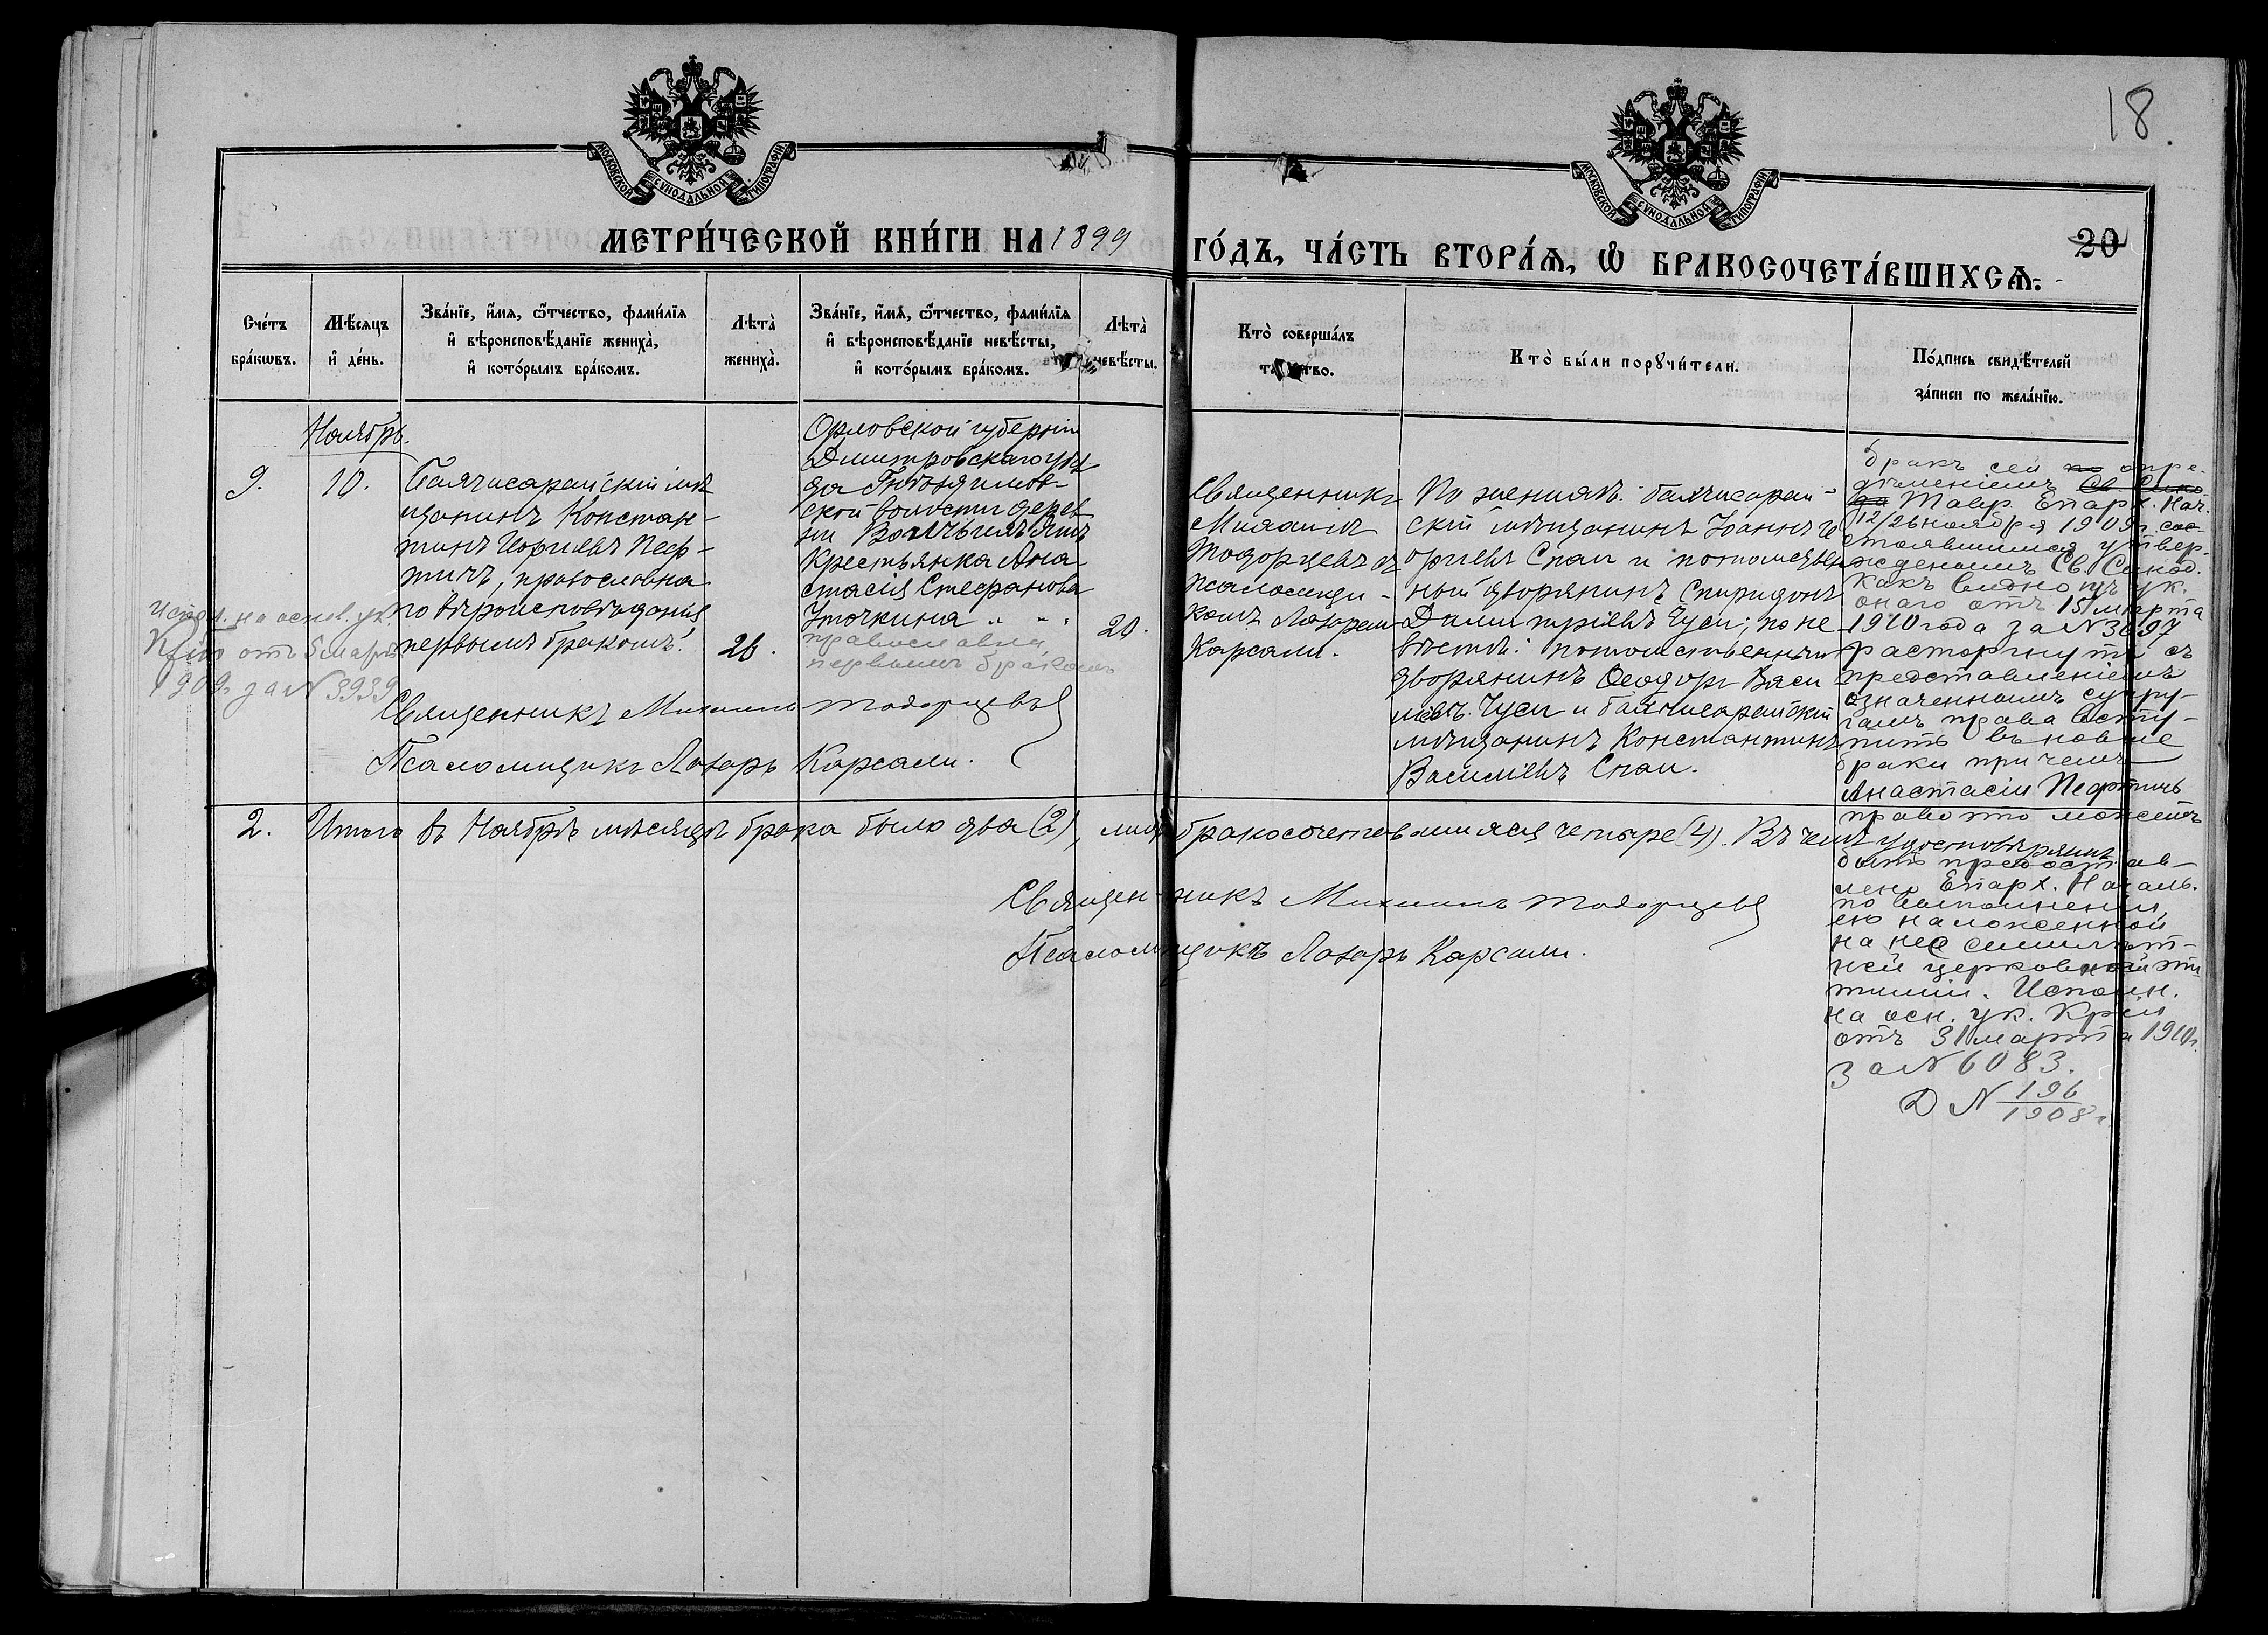 18
МОСКОВСКОЙ СУНОДАЛЬНОЙ ТИПОГРАФІИ
МОСКОВСКОЙ СУНОДАЛЬНОЙ ТИПОГРАФІИ
МЕТРИ́ЧЕСКОЙ КНИ́ГИ НА 1899
ГО́ДЪ, ЧА́СТЬ ВТОРА́Ѧ, Ѽ БРАКОСОЧЕТА́ВШИХСѦ.
20
Сче́тъ
бра́кѡвъ.
Мѣ́сяцъ
и҆ де́нь.
Зва́нїе, и҆́мѧ, ѻ҆́тчество, фами́лїѧ
и҆ вѣроисповѣ́данїе жениха̀,
и҆ кото́рымъ бра́комъ.
Лѣта̀
жениха̀.
Зва́нїе, и҆́мѧ, ѻ҆́тчество, фами́лїѧ
и҆ вѣроисповѣ́данїе невѣ́сты,
и҆ кото́рымъ бра́комъ.
Лѣта̀
невѣ́сты.
Кто̀ соверша́лъ
Кто̀ бы́ли порꙋчи́тели.
По́дпись свидѣ́телей
за́писи по жела́нїю.
Ноябрь.
9.
10.
Бахчисарайскій мѣ-
щанинъ Констан-
тинъ Георгіевъ Пеф-
тичъ, православна
по вѣроисповѣданія
первымъ бракомъ.
26.
Орловской губерніи
Дмитровскаго уѣз
да
ской волости дерев
ни
Крестьянка Ана
стасія Стефанова
Уточкина " " .
православна,
первымъ бракомъ
20.
Испол. на основ. ук.
Кріи отъ 5 марта
1909 г за N 3939
Священникъ Михаилъ Тодорцевъ
Псаломщикъ Лазарь Карсали.
Священникъ
Михаилъ
Тодорцевъ съ
псаломщи-
комъ Лазарем
Карсали.
По женихѣ: бахчисарай-
скій мѣщанинъ Іоаннъ Ге
оргіевъ Спаи и потомствен
ный дворянинъ Спиридонъ
Димитріевъ Чуси; по не
вѣстѣ: потомственный
дворянинъ Ѳеодоръ Васи
лiевъ Чуси и бахчисарайскій
мѣщанинъ Константинъ
Василіевъ Спаи.
бракъ сей по опре-
дѣленіемъ Св Сино
да Тавр. Епарх. Нач.
12/26 ноября 1909 г. сос
тоявшимся утвер-
жденнымъ Св. Синод.
какъ видно изъ ук.
онаго отъ 15 марта
1910 года за N 3697
расторгнутъ съ
представленіемъ
означеннымъ супру-
гамъ права всту-
пить въ новые
браки при чемъ
Анастасіи Пефтичъ
право это можетъ
быть предостав-
лено Епарх. Началь.
по выполненіи
ею наложенной
на нее семилѣт-
ней церковной эпи
тиміи. Исполн.
на осн. ук. Кріи
отъ 31 марта 1910 г.
за N 6083.
Д N 196/1908 г.
2. Итого въ Ноябрѣ мѣсяцѣ брака было два (2), лицъ бракосочетавшихся четыре (4). Въ чемъ удостовѣряемъ
Священникъ Михаилъ Тодорцевъ
Псаломщикъ Лазарь Карсали.